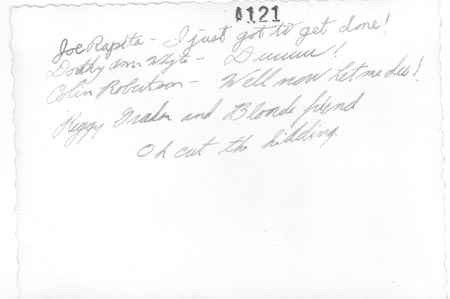 A121
Joe Rapita - I just got to get done!
Dorthy Ann Whyte - Duuuu!
Colin Robertson - Well now let me see!
Reggy and Blonde friend
Oh cut the kidding.